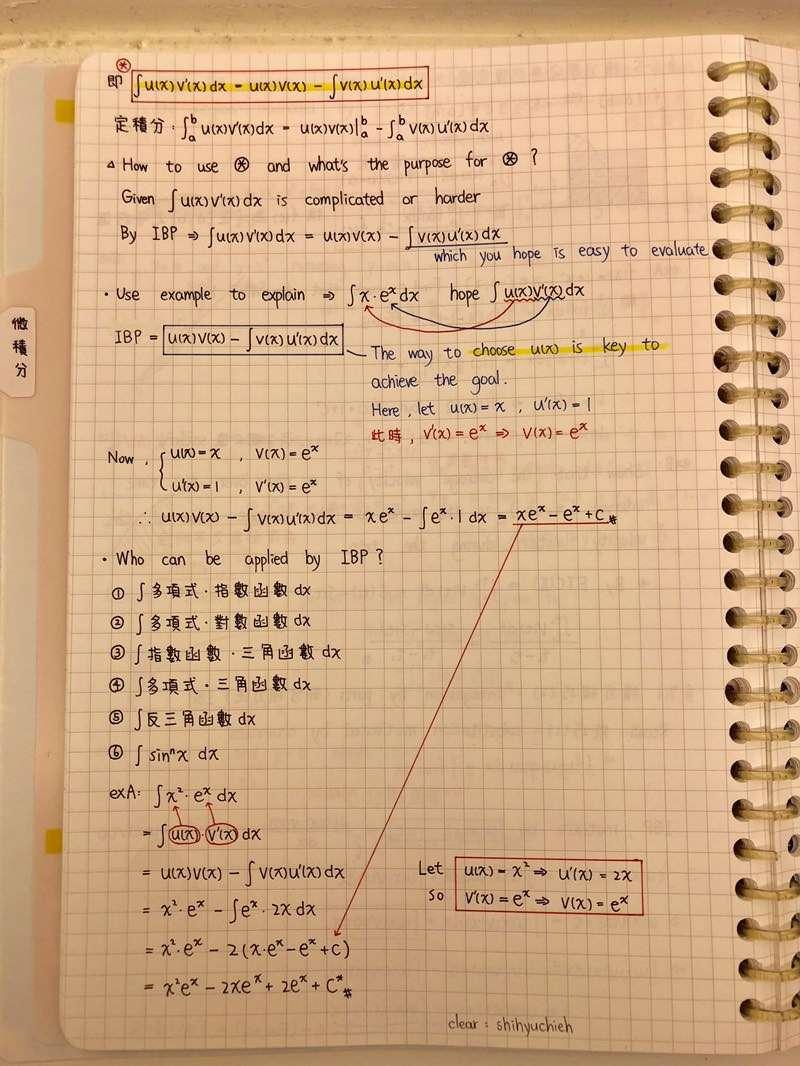 ⊛
即 ∫u(x)v'(x)dx = u(x)v(x) - ∫v(x)u'(x)dx
定積分：∫ₐᵇ u(x)v'(x)dx = u(x)v(x)|ₐᵇ - ∫ₐᵇ v(x)u'(x)dx
△ How to use ⊛ and what's the purpose for ⊛ ?
Given ∫u(x)v'(x)dx is complicated or harder
By IBP ⇒ ∫u(x)v'(x)dx = u(x)v(x) - ∫v(x)u'(x)dx
which you hope is easy to evaluate
・Use example to explain ⇒ ∫x·eˣdx hope ∫u(x)v'(x)dx
IBP = u(x)v(x) - ∫v(x)u'(x)dx
The way to choose u(x) is key to
achieve the goal.
Here, let u(x) = x , u'(x) = 1
此時, v'(x) = eˣ ⇒ v(x) = eˣ
Now, { u(x) = x , v(x) = eˣ
u'(x) = 1 , v'(x) = eˣ
∴ u(x)v(x) - ∫v(x)u'(x)dx = xeˣ - ∫eˣ·1 dx = xeˣ - eˣ + c #
・Who can be applied by IBP ?
① ∫多項式·指數函數 dx
② ∫多項式·對數函數 dx
③ ∫指數函數·三角函數 dx
④ ∫多項式·三角函數 dx
⑤ ∫反三角函數 dx
⑥ ∫sinⁿx dx
exA: ∫x²·eˣ dx
= ∫u(x)·v'(x) dx
= u(x)v(x) - ∫v(x)u'(x)dx
Let u(x) = x² ⇒ u'(x) = 2x
So v'(x) = eˣ ⇒ v(x) = eˣ
= x²·eˣ - ∫eˣ·2x dx
= x²·eˣ - 2(x·eˣ - eˣ + c)
= x²eˣ - 2xeˣ + 2eˣ + C* #
clear : shihyuchieh
微積分